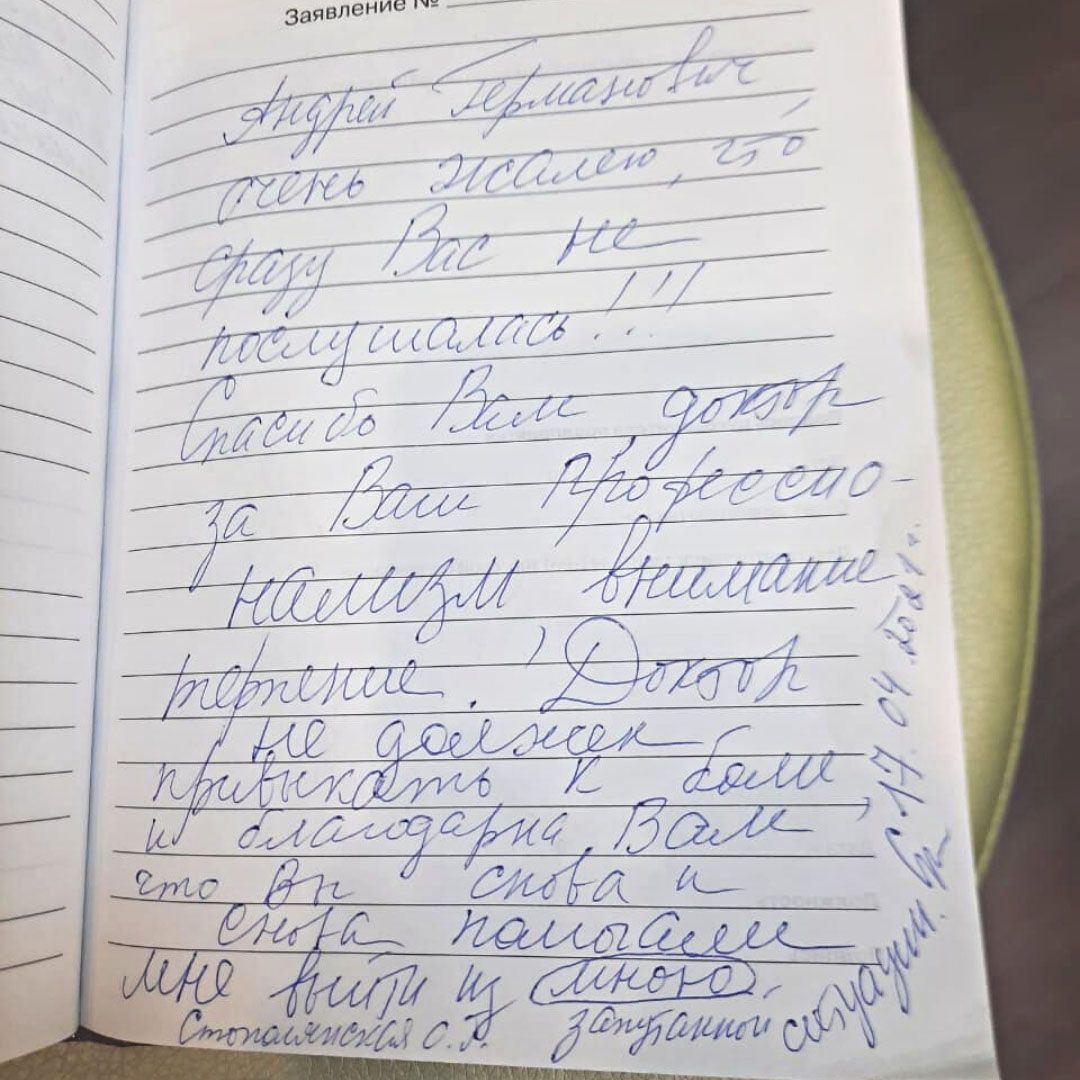 Заявление №
Андрей Германович
очень жалею, что
сразу Вас не
послушалась!!!
Спасибо Вам, доктор
за Ваш профессио-
нализм внимание,
терпение. Доктор
не должен
привыкать к боли,
и благодарна Вам,
что Вы снова и
снова помогаете
мне выйти из мною
запутанной ситуации.
17.04.2021г.